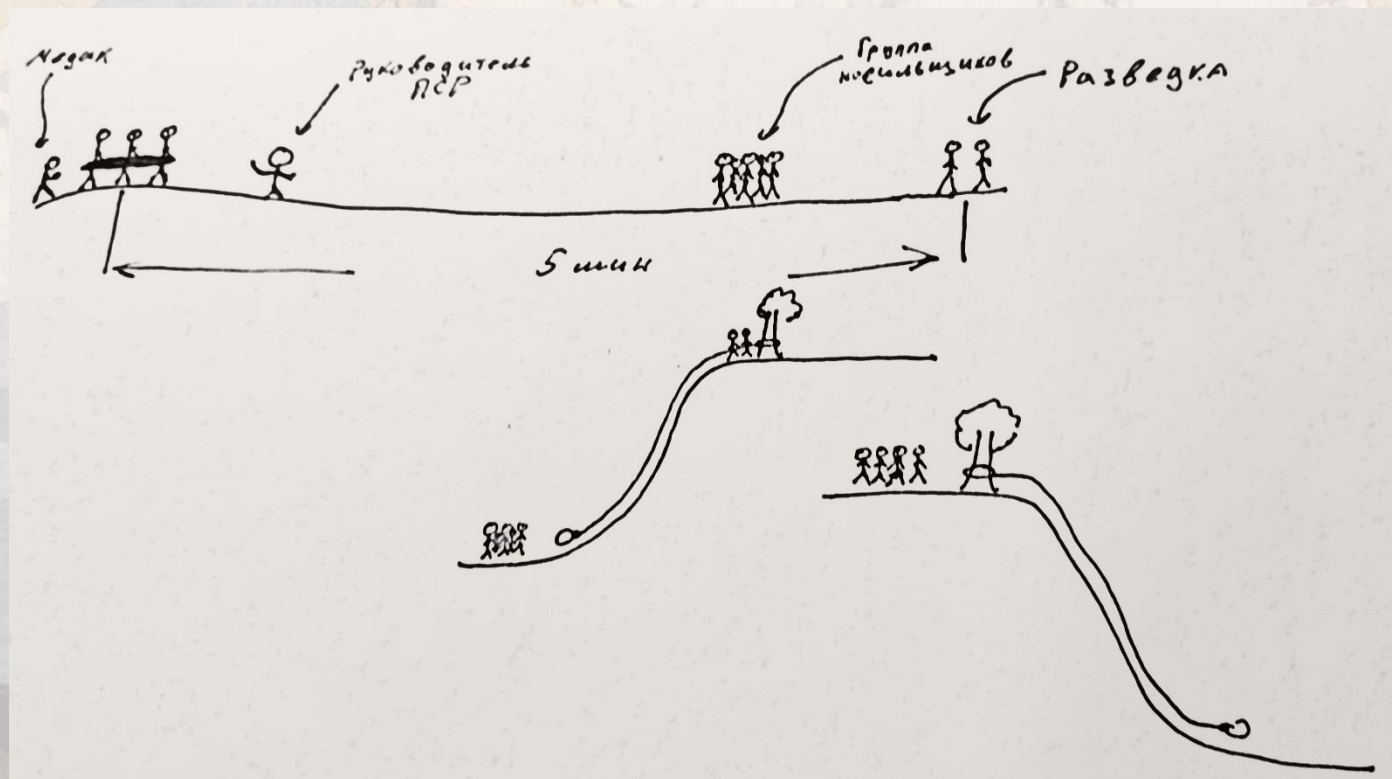 Медик
Руководитель
ПСР
Группа
носильщиков
Разведка
5 мин